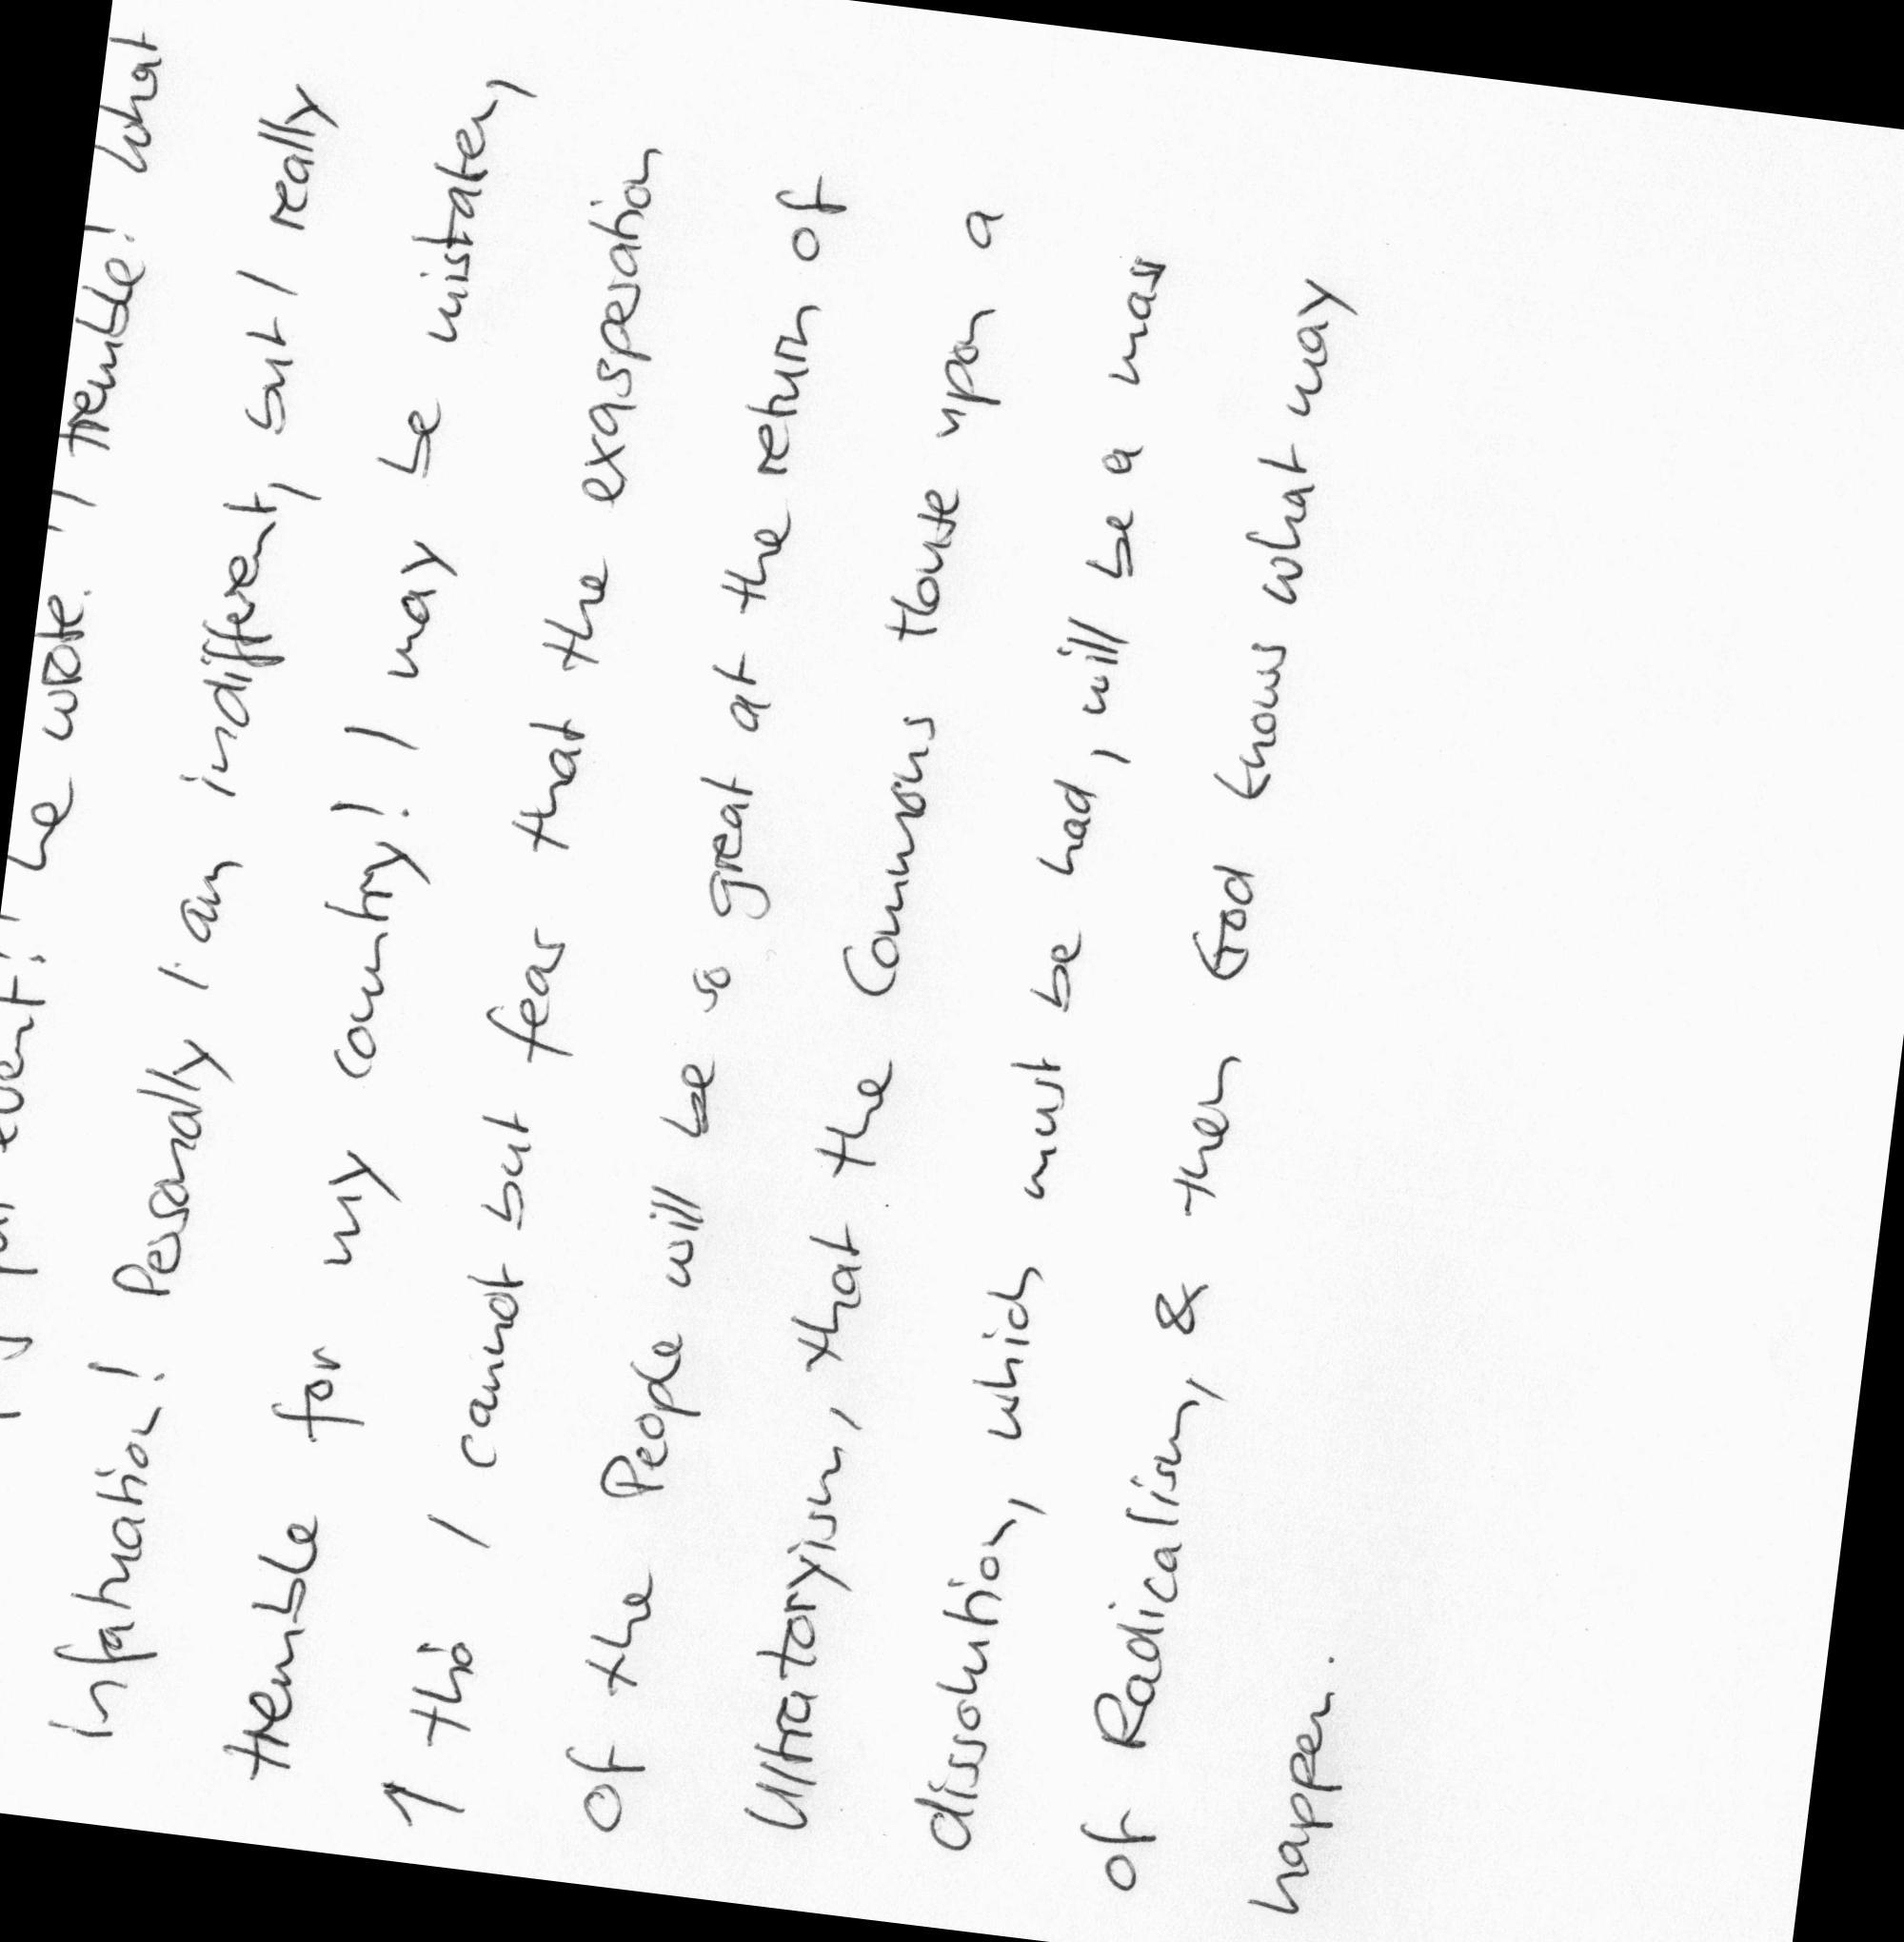 event! he wrote. I tremble! what
infatuation! Personally I am indifferent, but I really
tremble for my country! I may be mistaken,
1 thi I cannot but fear that the exasperation
of the People will be so great at the return of
Ultratoryism, that the Commons House upon a
dissolution, which must be had, will be a mass
of Radicalism, & then God knows what may
happen.